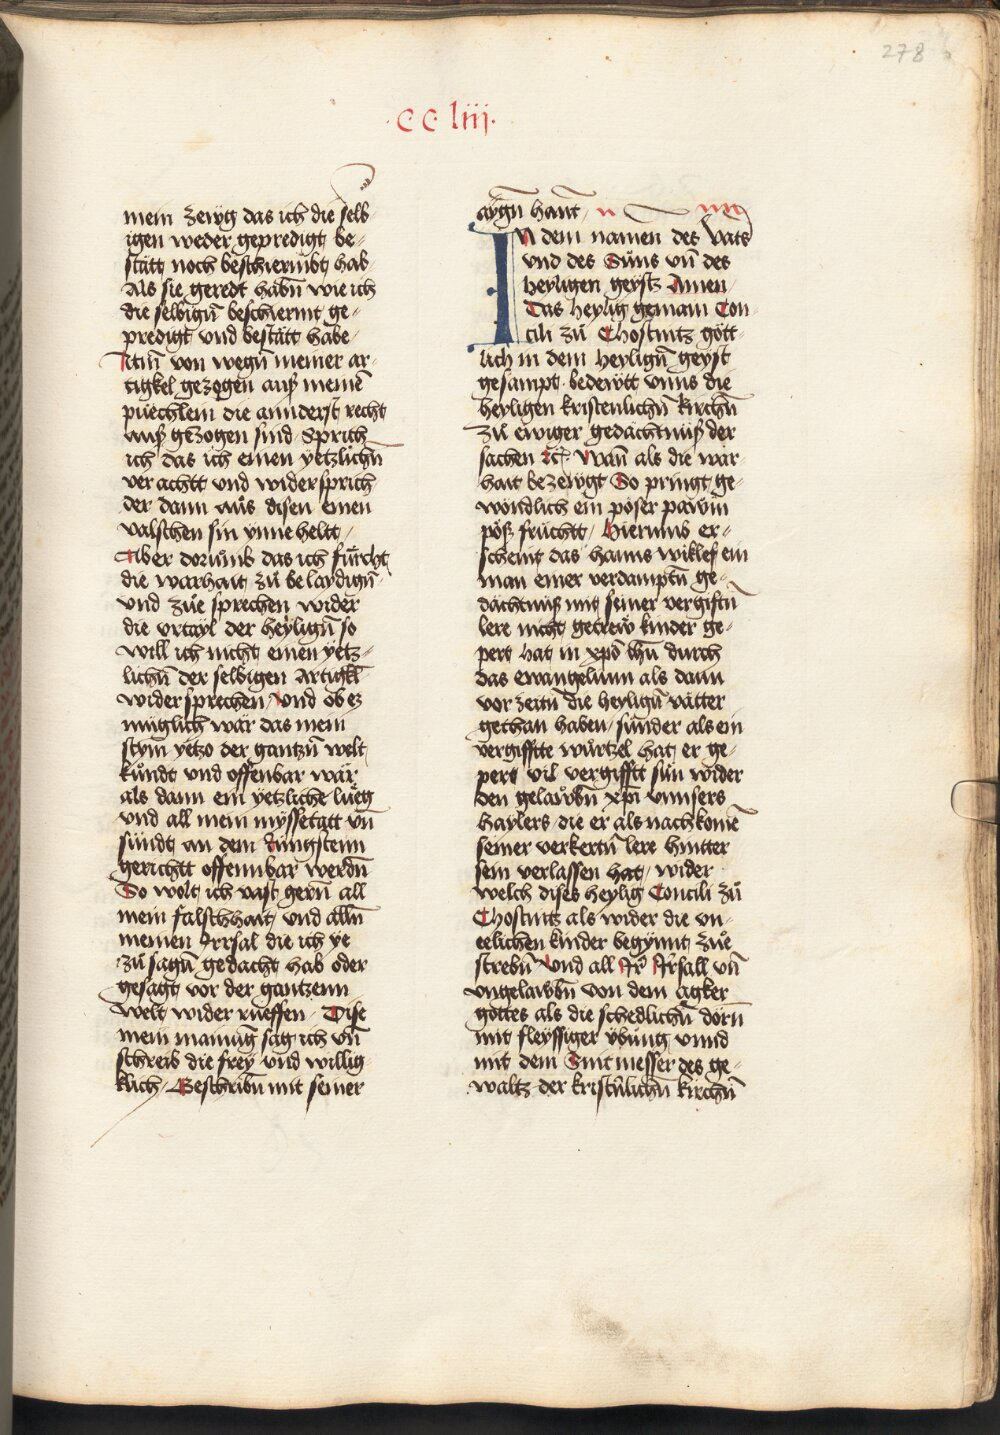 278
·CC liij·
mein zewg das ich die selb-
igen weder gepredigt be-
stätt noch beschiermbt hab
Als sie geredt habn̄ wie ich
die selbign̄ beschiermt ge-
predigt vnd bestätt habe
Itm̄ von wegn̄ meiner ar-
tigkel gezogen auß meinē
püechlein die annderst recht
auß gezogen sind Sprich
ich das ich einen yetzlichn̄
ver achtt vnd widersprich
der dann auß disen einen
valschen sin ynne heltt /
Aber dorůmb das ich fürcht
die warhait zů belaydign̄
vnd zůe sprechen wider
die vrtayl der heylign̄ so
will ich nicht einen yetz-
lichn̄ der selbigen Artigkl
widersprechen / vnd ob ez
müglich wär das mein
stym yetzo der gantzn̄ welt
kůndt vnd offenbar wär
als dann ein yetzliche lüeg
vnd all mein myssetatt vn̄
sündt an dem Jüngstenn
gerichtt offennbar werdn̄
So wolt ich vast gern̄ all
mein falschhait vnd alln̄
meinen Irrsal die ich ye
zů sagn̄ gedacht hab oder
gesagt vor der gantzenn
welt wider rüeffen / Dise
mein mainūg sag ich vn̄
schreib die frey vnd willig-
klich / Beschribn̄ mit seiner
aygn̄ hant
In dem namen des Vats
vnd des Suns vn̄ des
heyligen geysts Amen
Das heylig gemain Con-
cili zů Chostnitz gött-
lich in dem heylign̄ geyst
gesampt bedewtt vnns die
heyligen kristenlichn̄ kirchn̄
zů ewiger gedächtnuß der
sachen ꝛc Wan̄ als die war-
hait bezewgt So pringt ge-
wondlich ein pöser pawm
pöß früchtt / Hierumb er-
scheint das hanns wiklef ein
man einer verdamptn̄ ge-
dächtnuß mit seiner vergiftn̄
lere nicht getrew kinder ge-
pert hat in xp̄o ihū durch
das ewangelium als dann
vor zeitn̄ die heylign̄ vätter
gethan haben / sunder als ein
vergifftte würtzel hat er ge-
pert vil vergifftt sün wider
den gelawbn̄ xp̄i vnnsers
haylers die er als nachkomē
seiner verkertn̄ lere hintter
sein verlassen hat / wider
welch dises heylig Concili zů
Chostnitz als wider die vn-
eelichen kinder begynnt zůe
strebn̄ vnd all Irsall vn̄
vngelawbn̄ von dem agker
gottes als die schedlichn̄ dorn̄
mit fleyssiger ybūng vnnd
mit dem Snitmesser des ge-
waltz der kristn̄lichn̄ kirchn̄